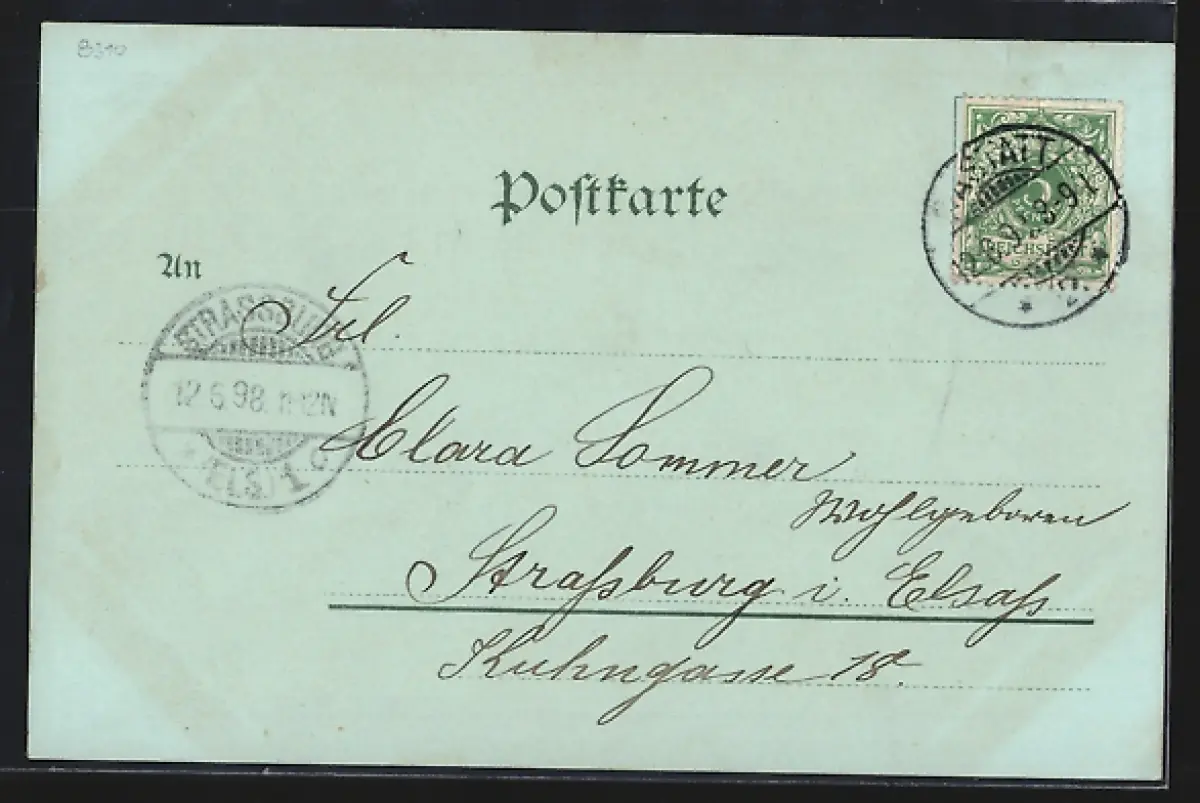 8310
Postkarte
RASTATT
8-9
REICHSPOST
An
Frl.
STRASSBURG
12.6.98. 11-12N
(ELS.) 1 c
Clara Sommer
Wohlgeboren
Straßburg i. Elsaß
Kuhngasse 18.